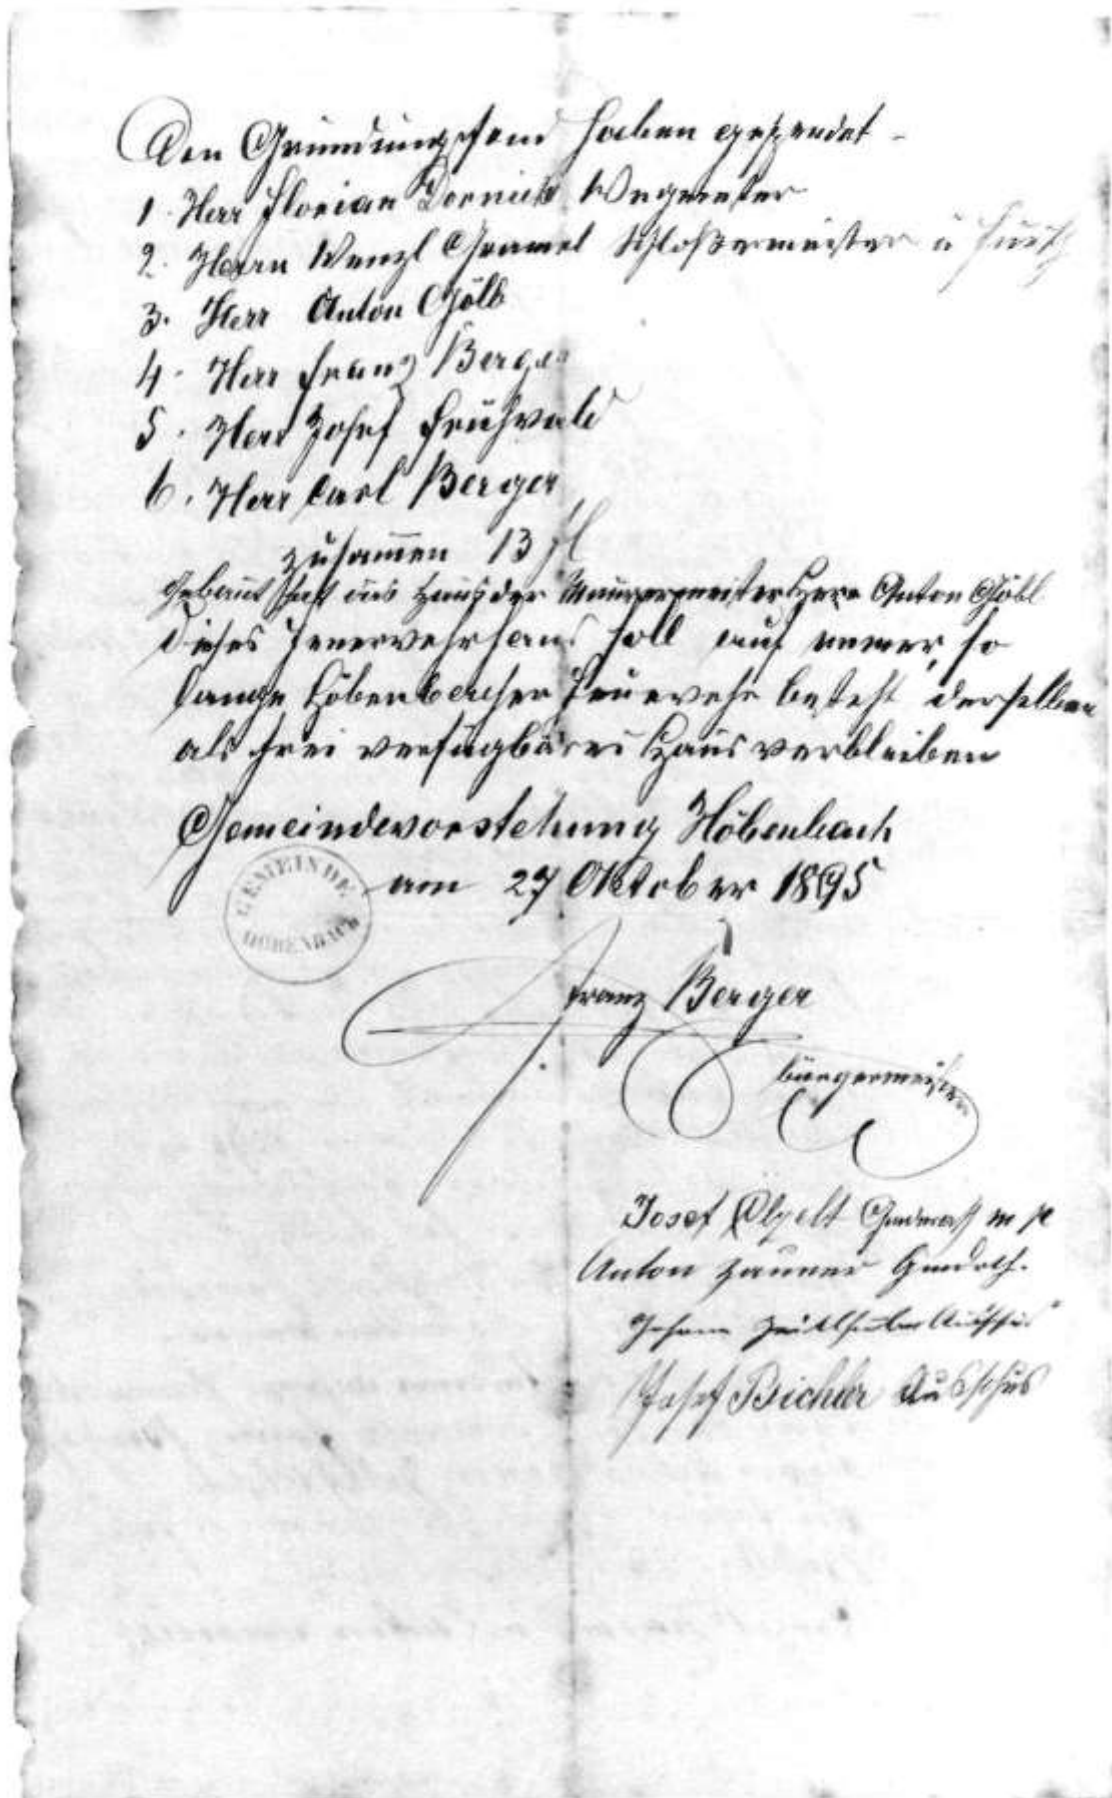 Den Gründungsfond haben gespendet -
1. Herr Florian Dornick Wegmeister
2. Herrn Wenzl Gramel Schloßermeister u
3. Herr Anton Göll
4. Herr Franz Berger
5. Herr Josef Frühwald
6. Herr Carl Berger
zusammen 13 fl
gebaut hat das Haus der Maurermeister Herr Anton Göbl
Dieses Feuerwehrhaus soll auf immer, so
lange Höbenbacher Feuerwehr besteht derselben
als frei verfügbares Haus verbleiben
Gemeindevorstehung Höbenbach
am 27 Oktober 1895
GEMEINDE
HÖBENBACH
Franz Berger
bürgermeister
Josef Gmdrath m p
Anton Zauner Gmdrth.
Johann Ausschus
Josef Bichler Ausschus